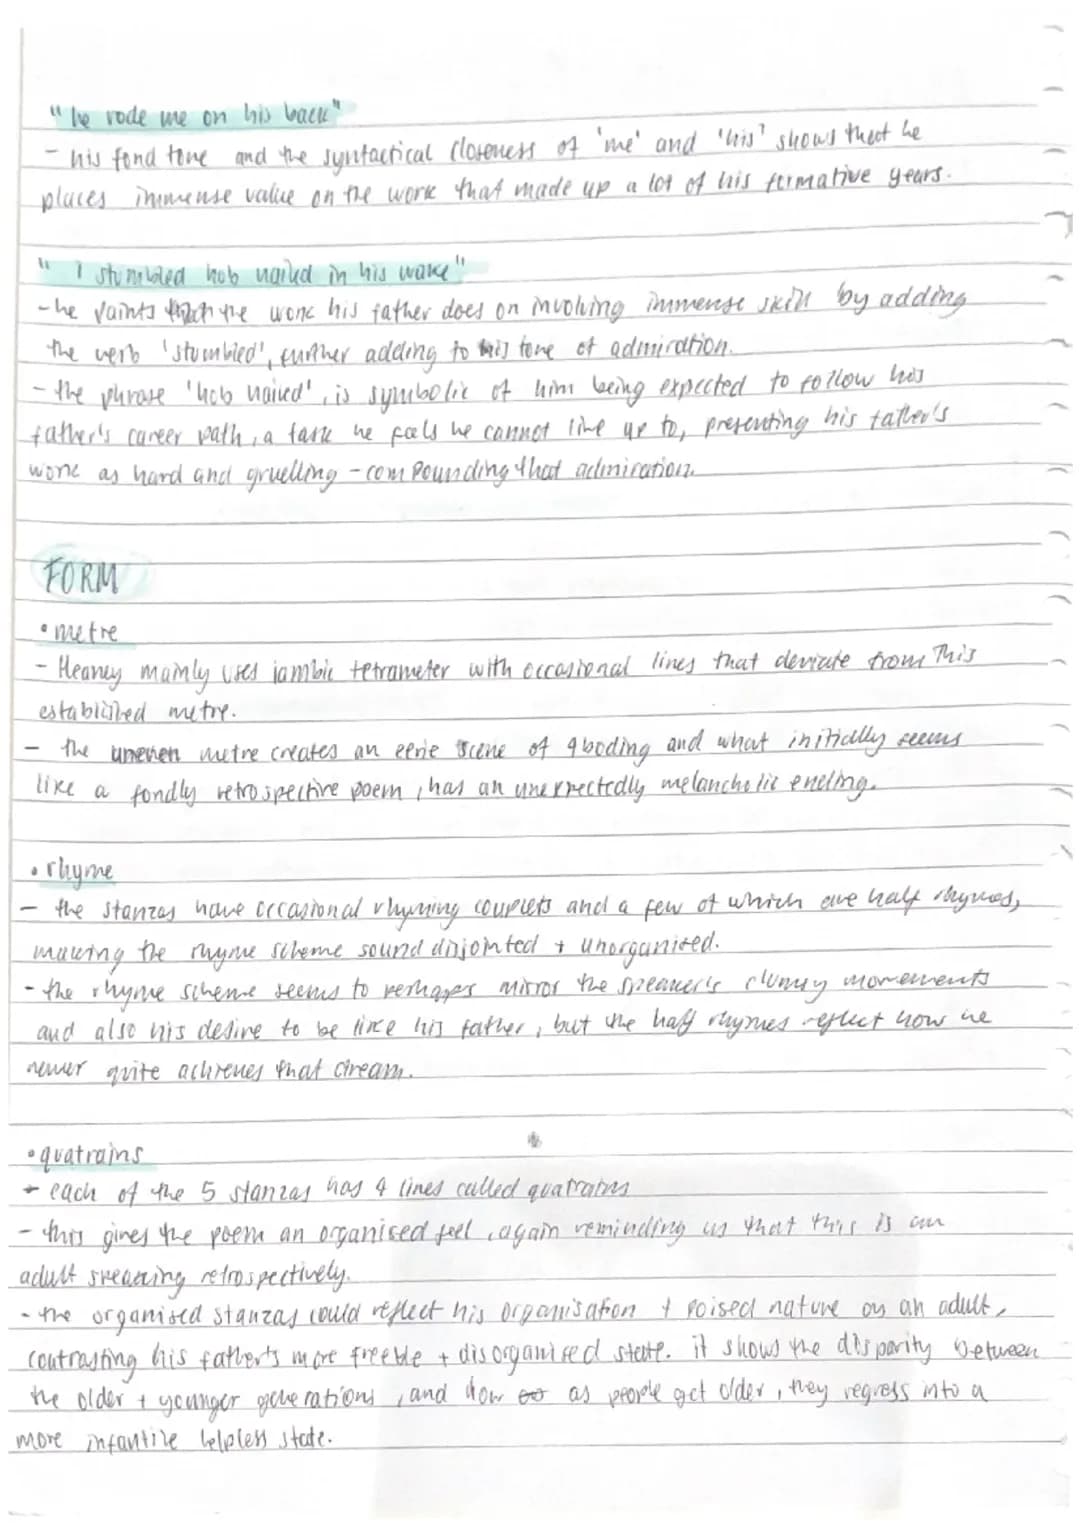 "he rode me on his back"
- his fond tone and the syntactical closeness of 'me' and 'his' shows that he
places immense value on the work that made up a lot of his formative years.
" I stumbled hob nailed in his wake"
- he paints the work his father does on involving immense skill by adding
the verb 'stumbled', further adding to his tone of admiration.
- the phrase 'hob nailed', is symbolic of him being expected to follow his
father's career path, a task he feels he cannot live up to, presenting his father's
work as hard and gruelling - compounding that admiration.
FORM
• metre
- Heaney mainly uses iambic tetrameter with occasional lines that deviate from this
established metre.
- the uneven metre creates an eerie scene of aboding and what initially seems
like a fondly retrospective poem, has an unexpectedly melancholic ending.
• rhyme
- the stanzas have occasional rhyming couplets and a few of which are half rhymes,
making the rhyme scheme sound disjointed + unorganised.
- the rhyme scheme seems to perhaps mirror the speaker's clumsy movements
and also his desire to be like his father, but the half rhymes reflect how he
never quite achieves that dream.
• quatrains
- each of the 5 stanzas has 4 lines called quatrains
- this gives the poem an organised feel, again reminding us that this is an
adult speaking retrospectively.
- the organised stanzas could reflect his organisation + poised nature as an adult,
contrasting his father's more freeble + disorganised state. it shows the disparity between
the older + younger generations, and how as people get older, they regress into a
more infantile helpless state.